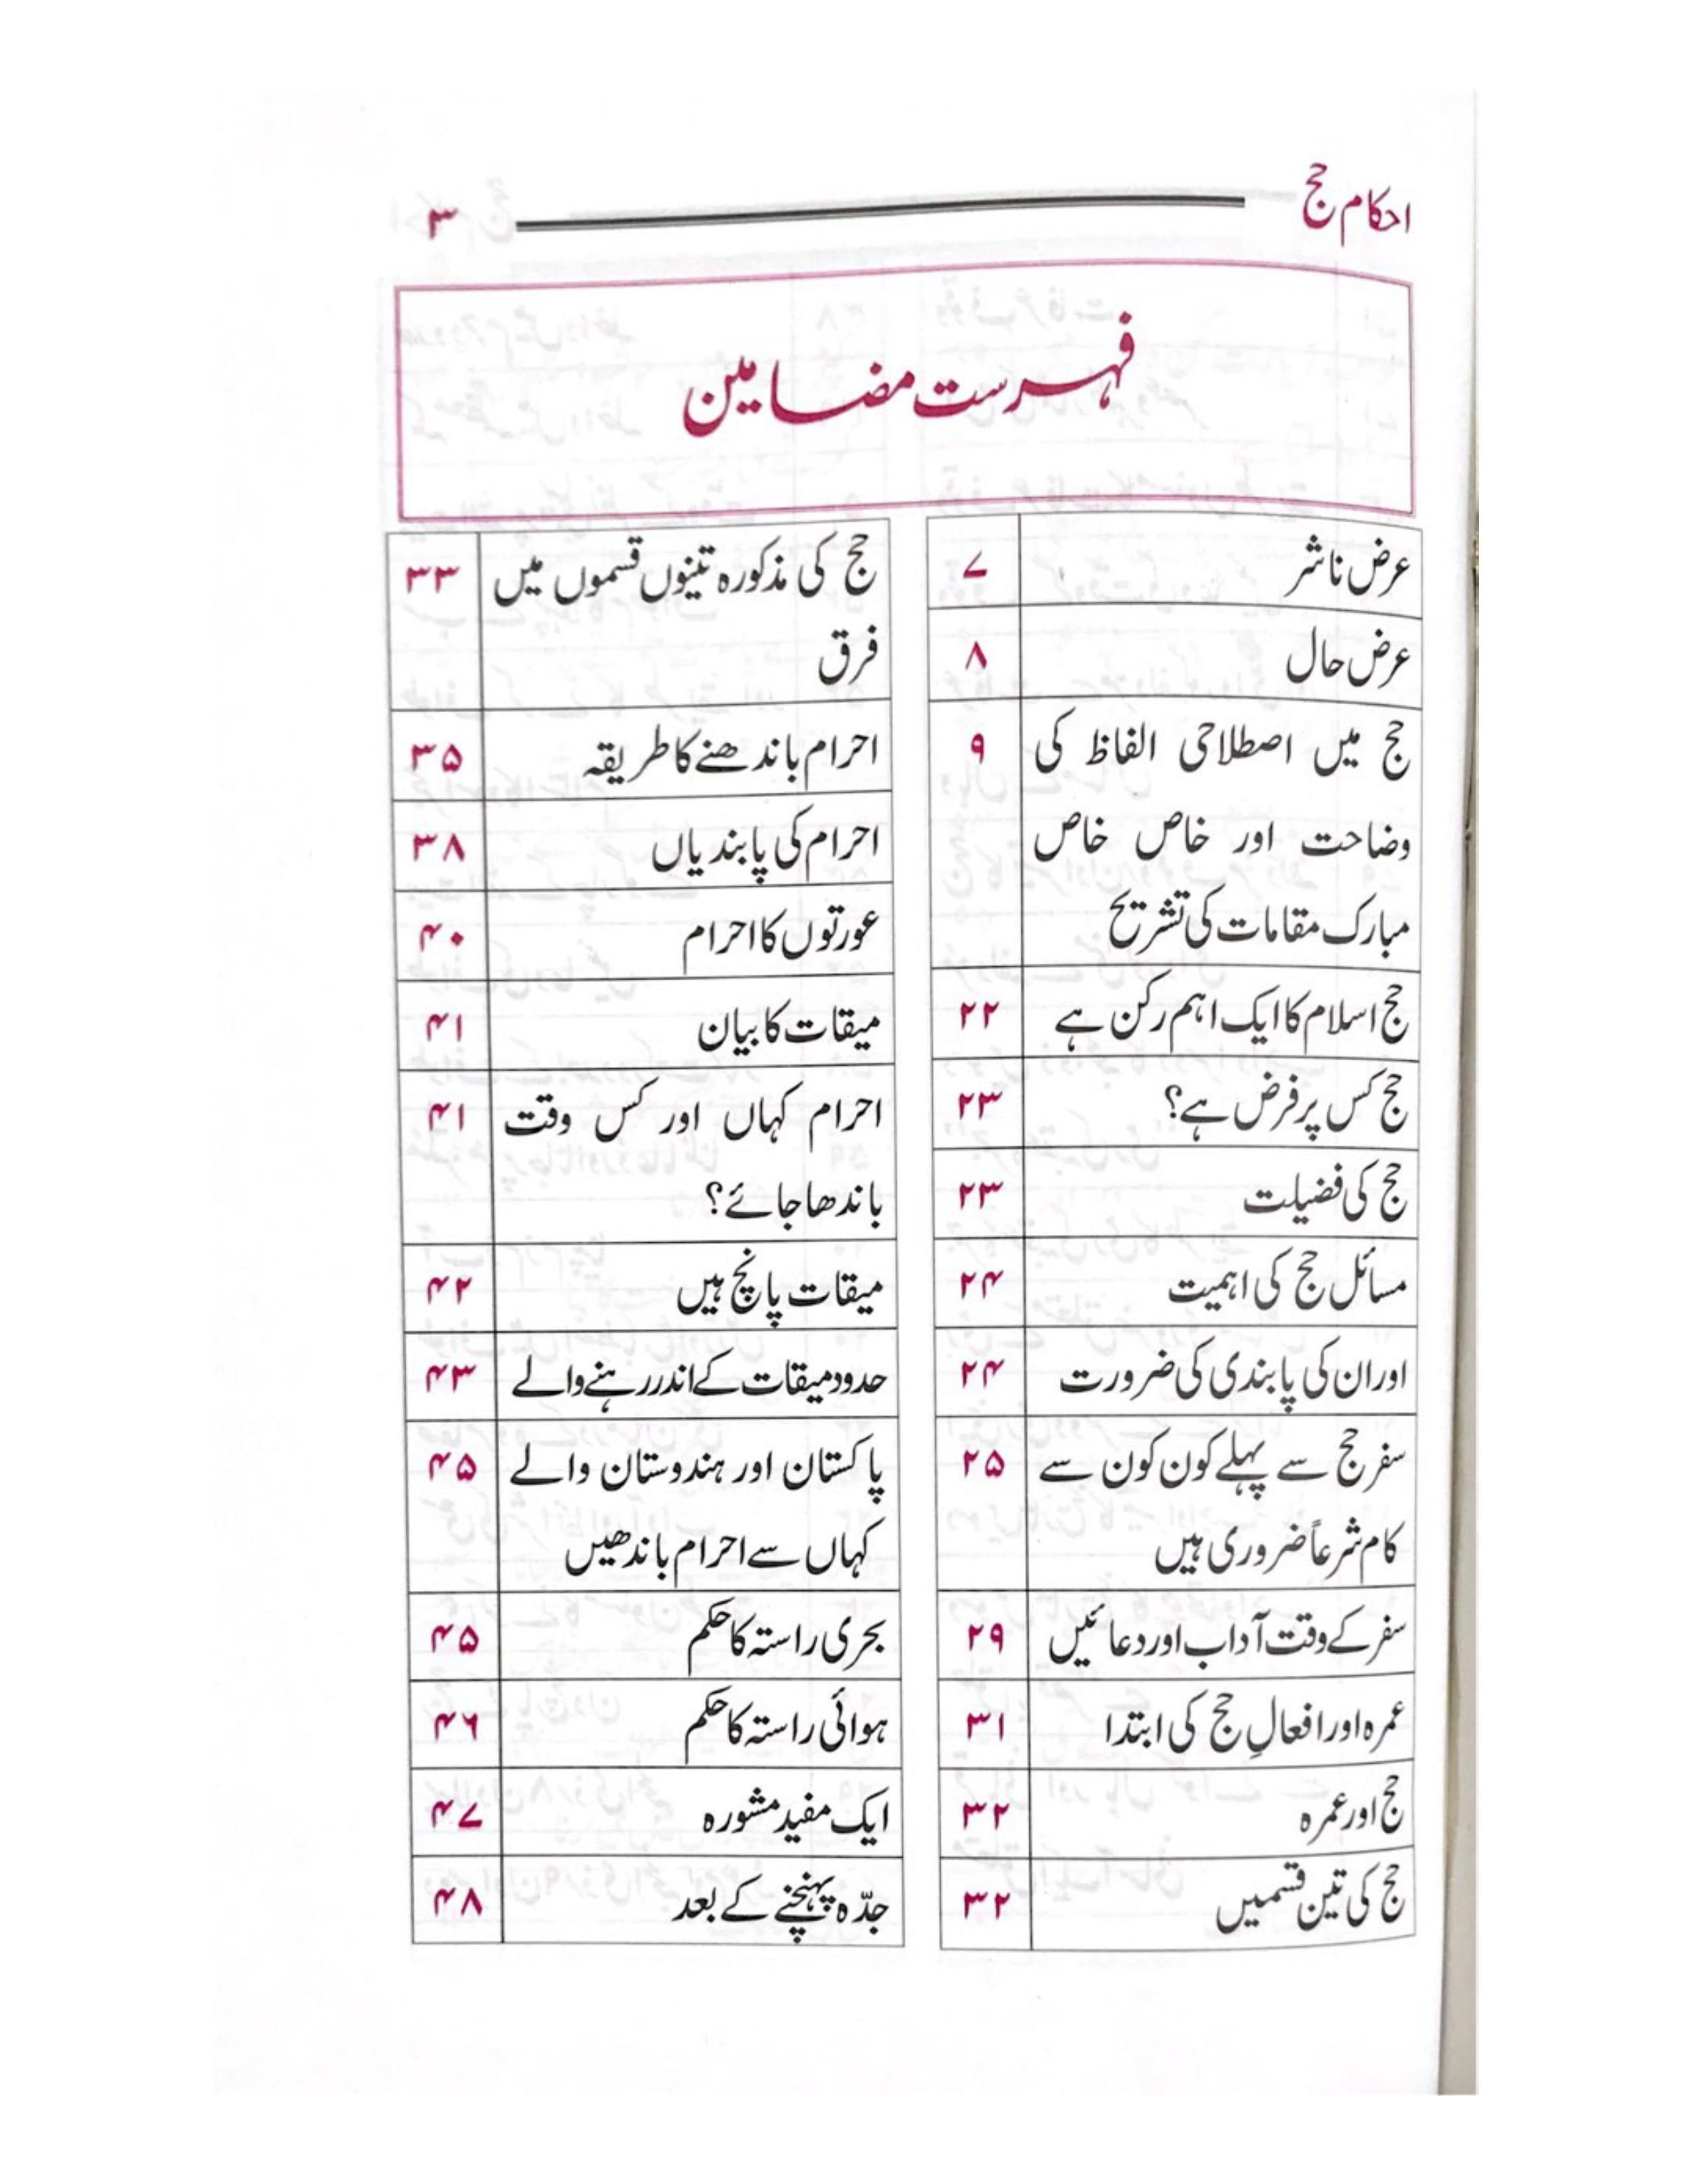 احکام حج ۳
فہرست مضامین
عرض ناشر ۷
عرض حال ۸
حج میں اصطلاحی الفاظ کی ۹
وضاحت اور خاص خاص
مبارک مقامات کی تشریح
حج اسلام کا ایک اہم رکن ہے ۲۲
حج کس پر فرض ہے؟ ۲۳
حج کی فضیلت ۲۳
مسائل حج کی اہمیت ۲۴
اور ان کی پابندی کی ضرورت ۲۴
سفر حج سے پہلے کون کون سے ۲۵
کام شرعاً ضروری ہیں
سفر کے وقت آداب اور دعائیں ۲۹
عمرہ اور افعالِ حج کی ابتدا ۳۱
حج اور عمرہ ۳۲
حج کی تین قسمیں ۳۲
حج کی مذکورہ تینوں قسموں میں ۳۳
فرق
احرام باندھنے کا طریقہ ۳۵
احرام کی پابندیاں ۳۸
عورتوں کا احرام ۴۰
میقات کا بیان ۴۱
احرام کہاں اور کس وقت ۴۱
باندھا جائے؟
میقات پانچ ہیں ۴۲
حدود میقات کے اندر رہنے والے ۴۳
پاکستان اور ہندوستان والے ۴۵
کہاں سے احرام باندھیں
بحری راستہ کا حکم ۴۵
ہوائی راستہ کا حکم ۴۶
ایک مفید مشورہ ۴۷
جدّہ پہنچنے کے بعد ۴۸